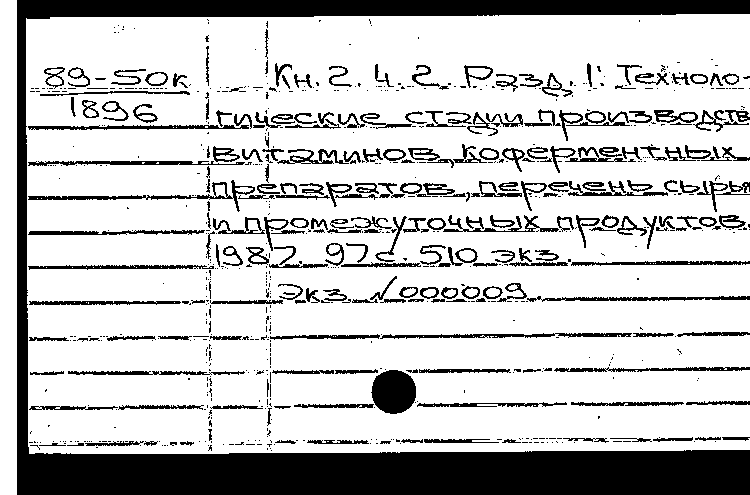 89-50к
1896
Кн. 2. 4. 2. Разд. 1: Техноло-
гические стадии производств
витаминов, коферментных
препаратов, перечень сырья
и промежуточных продуктов.
1987. 97 с. 510 экз.
Экз. №000009.